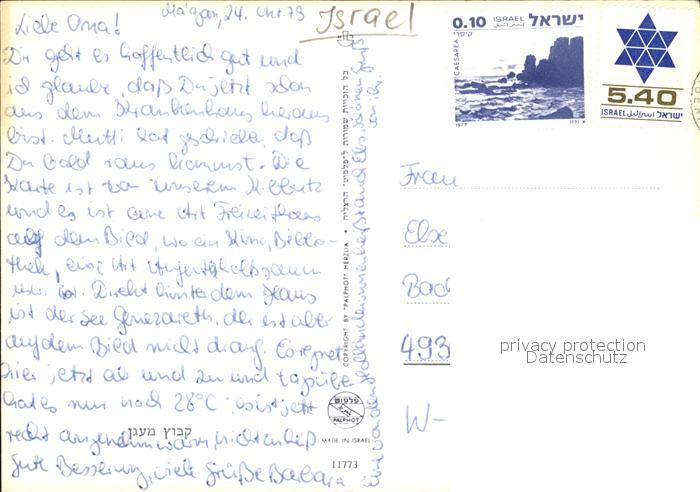 Ma'agan, 24. Okt. 79
Israel
Liebe Oma!
Dir geht es hoffentlich gut und
ich glaube, daß Du jetzt schon
aus dem Krankenhaus heraus
bist. Mutti hat geschrieben, daß
Du bald raus kommst. Die
Karte ist von unserem Kibbutz
und es ist eine Art Freizeithaus
auf dem Bild, wo ein Kino, Biblio-
thek, eine Art Aufenthaltsraum
usw. ist. Direkt hinter dem Haus
ist der See Genezareth, der ist aber
auf dem Bild nicht drauf. Es regnet
hier jetzt ab und zu und tagsüber
hat es nur noch 28°C, es ist jetzt
recht angenehm warm, nicht zu heiß
Gute Besserung, viele Grüße Barbara
קבוץ מעגן
כל הזכויות שמורות ל"פלפוט" הרצליה • COPYRIGHT BY "PALPHOT" HERZLIA
פלפוט
PALPHOT
MADE IN ISRAEL
11773
0.10 ISRAEL ישראל
اسرائيل
קיסרי
CAESAREA
1977
5.40
ISRAEL اسرائيل ישראל
Frau
Else
Bad
493
W-
privacy protection
Datenschutz